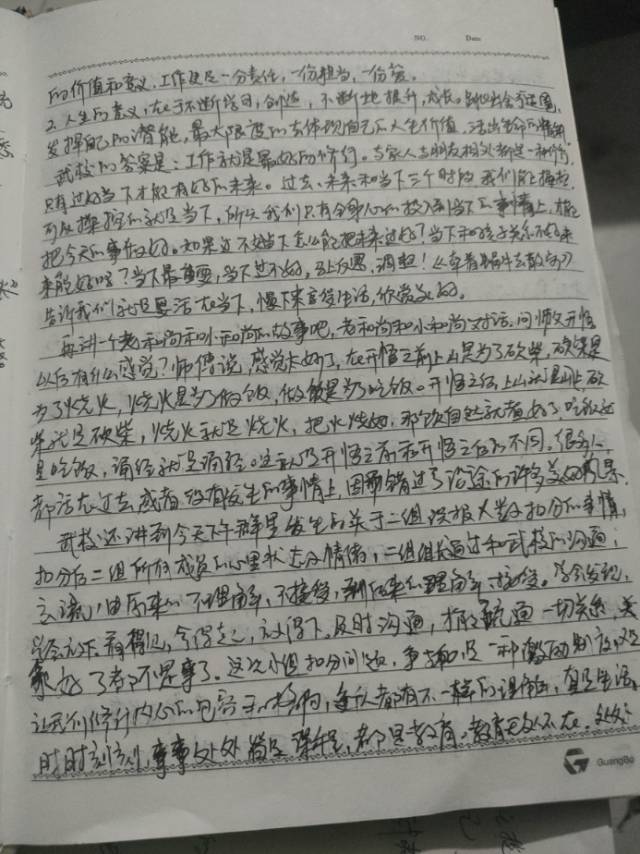 NO. Date
的价值和意义,工作便是一分责任,一份担当,一份爱。
2. 人生的意义,在于不断培习,创造,不断地提升,成长。
发挥自己的潜能,最大限度的去体现自己的人生价值,活出生命的精彩
武校的答案是:工作就是最好的修行。与家人与朋友相处都是一种修行,
只有过好当下才能有好的未来。过去、未来和当下三个时段,我们能掌控
可以操控的就是当下,所以我们只有全身心的投入到当下的事情上,才能
把今天的事件做好。如果过不好当下怎么能把未来过好?当下和孩子关系不好
来能好吗?当下最重要,当下过不好,马上反思,调整!《牵着蜗牛去散步》
告诉我们就是要活在当下,慢下来享受生活,欣赏美好。
再讲一个老和尚和小和尚的故事吧,老和尚和小和尚对话,问师父开悟
以后有什么感觉?师傅说,感觉太好了,在开悟之前上山是为了砍柴,砍柴是
为了烧火,烧火是为了做饭,做饭是为了吃饭。开悟之后,上山就是上山,砍
柴就是砍柴,烧火就是烧火,把火烧好,那饭自然就煮好了,吃饭就
是吃饭,诵经就是诵经。这就是开悟之前和开悟之后的不同。很多人
都活在过去或者没有发生的事情上,因而错过了沿途的许多美好风景。
武校还讲到今天下午群里发生的关于二组误报人数扣分的事情,
扣分后二组所有成员的心里状态及情绪,二组组长通过和武校的沟通,
交流,由原来的不理解,不接受,到后来的理解、接受。学会发现,
学会放下,看得见,拿得起,放得下。及时沟通,才能疏通一切关系,关
系好了都不是事了。这次小组扣分问题,事扣是一种激励
让我们修行内心的包容和格局,每个人都有不一样的理解,真是生活
时时刻刻,事事处处皆是课程,都是教育。教育无处不在,处处
GuangBo